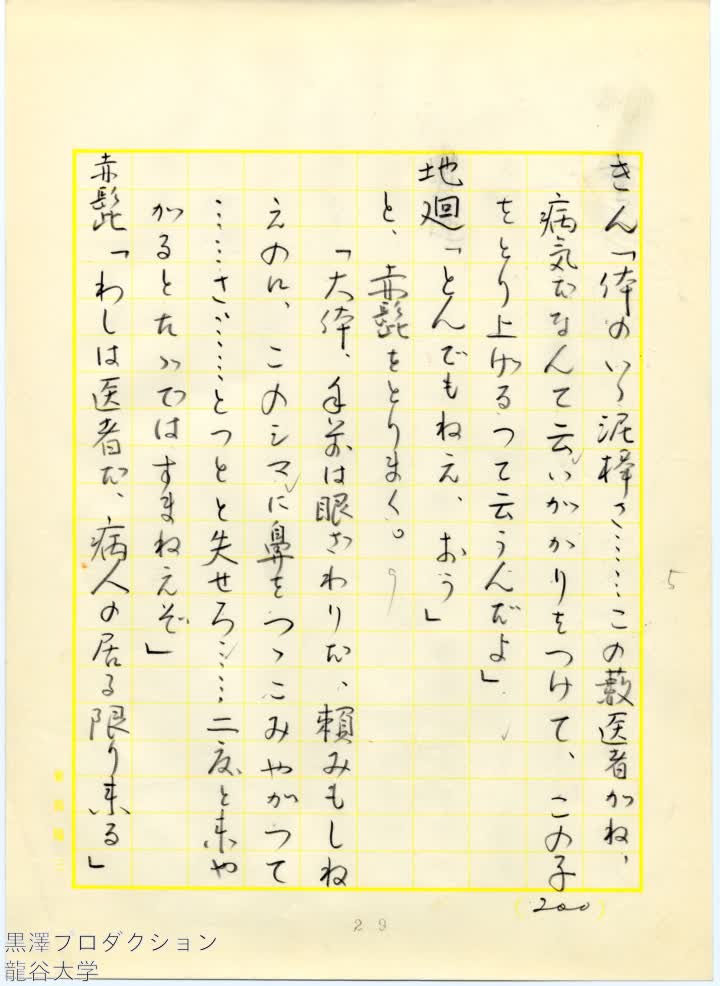 きん「体のいゝ泥棒さ……この藪医者がね、
病気だなんて云いがかりをつけて、この子
をとり上げるつて云うんだよ」
地廻「とんでもねえ、おう」
と、赤髭をとりまく。
「大体、手前は眼ざわりだ、頼みもしね
えのに、このシマに鼻をつゝこみやがつて
……さ……とつとと失せろ……二度と来や
がるとたゞではすまねえぞ」
赤髭「わしは医者だ、病人の居る限り来る」
5
200
29
黒澤プロダクション
龍谷大学